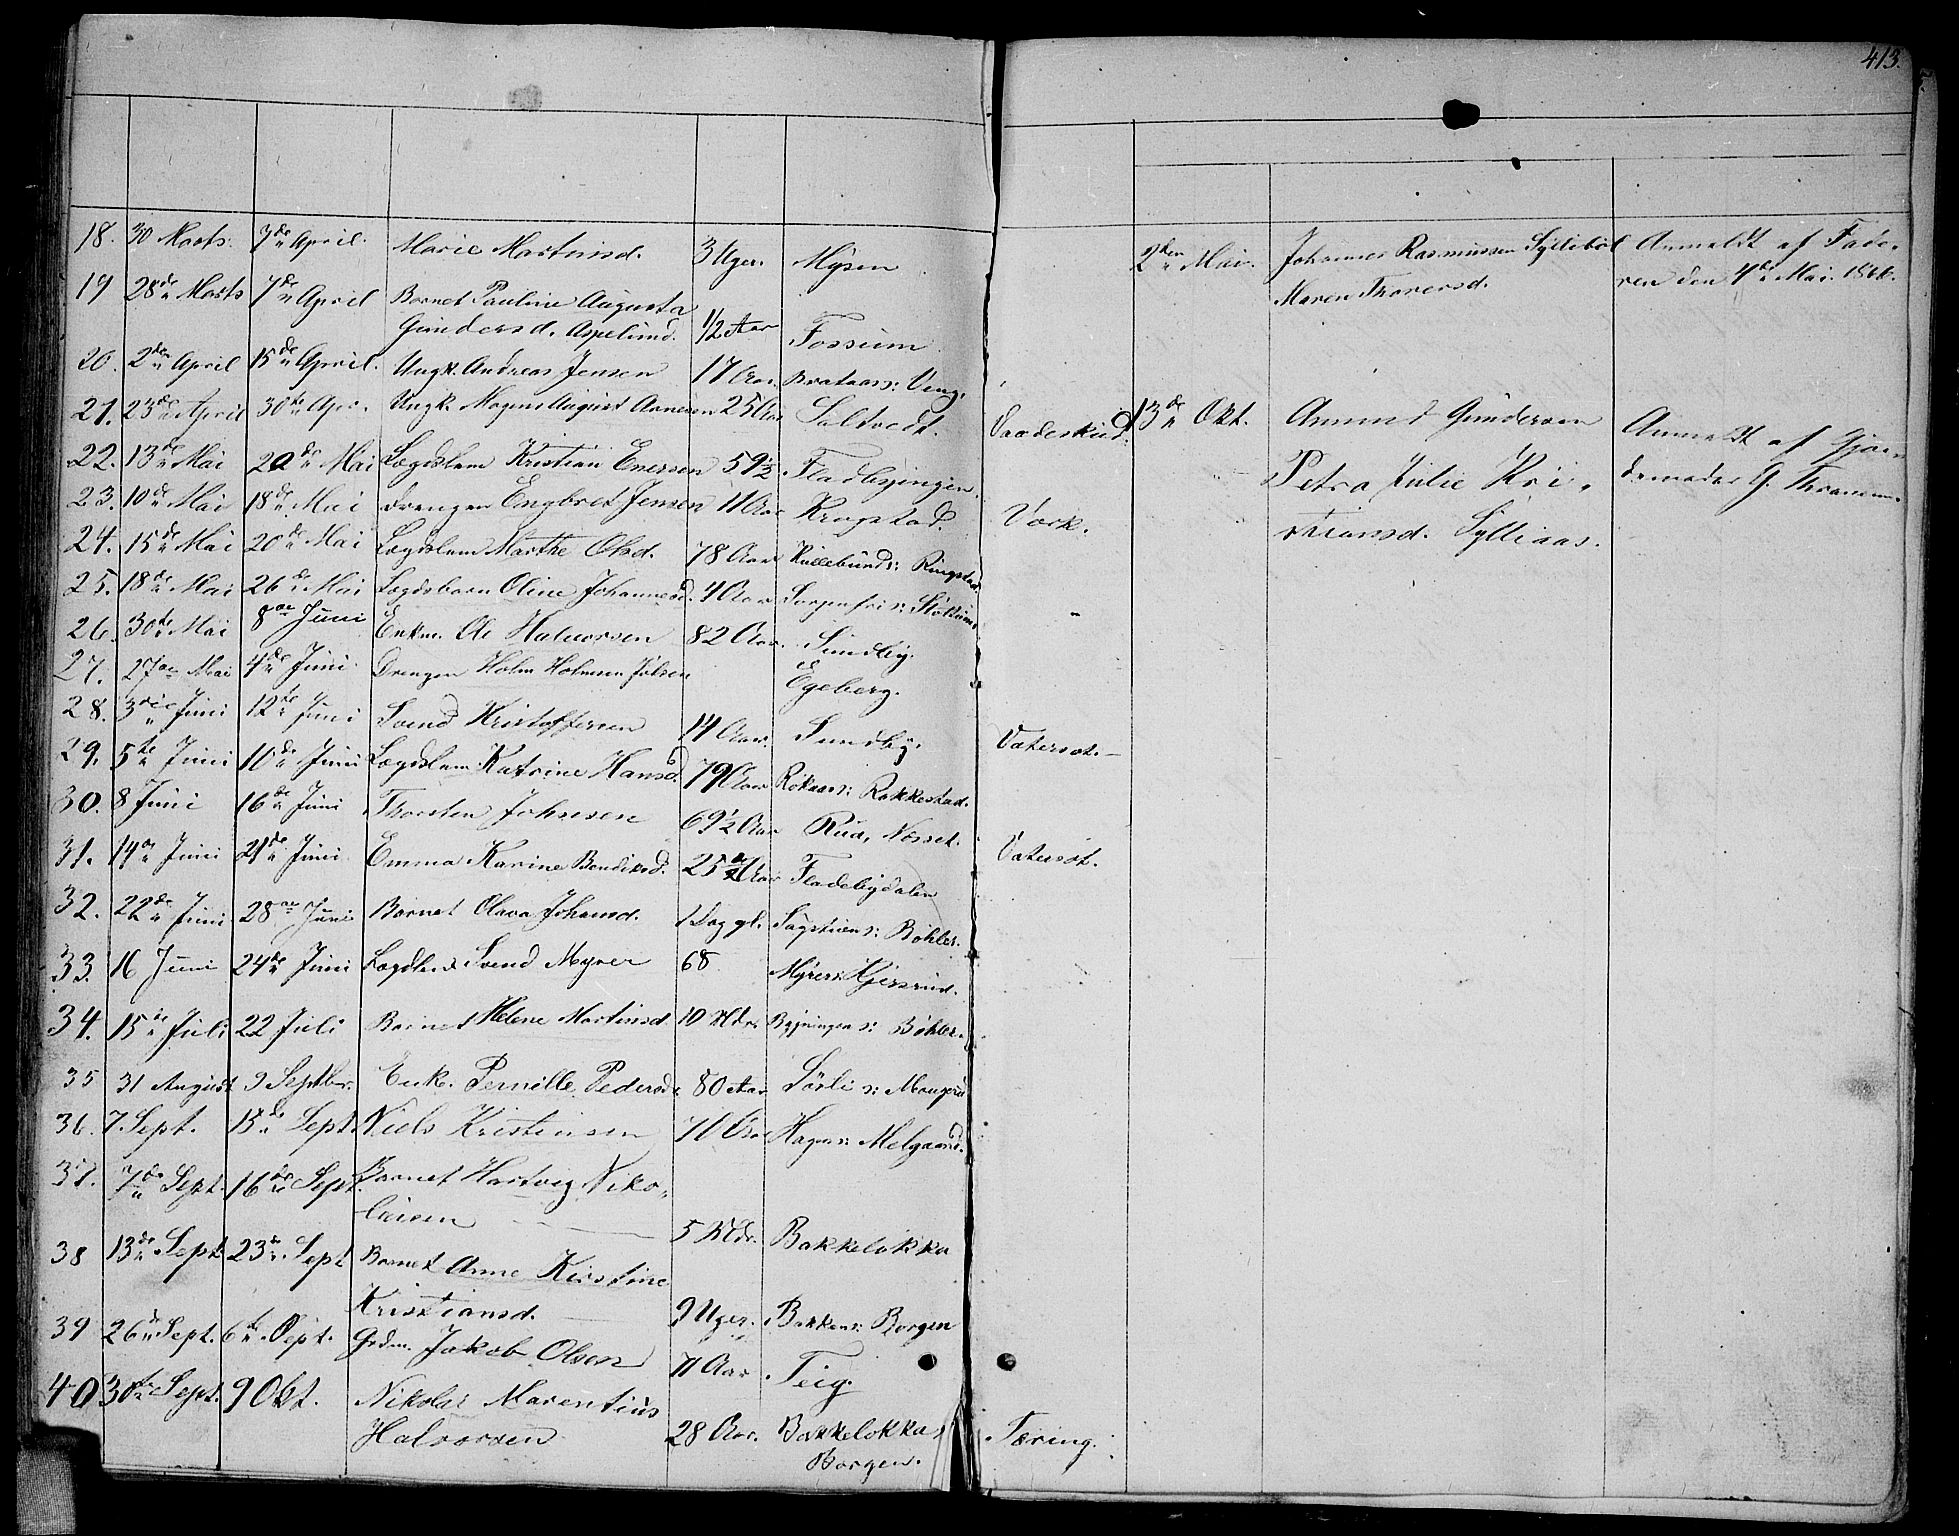 413.
18. 30 Marts. 7de April. Marie Martinsd. 3 Uger. Mysen
2den Mai. Johannes Rasmussen Sylliböl Anmeldt af Fade-
Maren Thorersd. ren den 4de Mai 1866.
19 28de Marts 7de April Barnet Pauline Augusta
Gundersd. Aspelund. 1/2 Aar Fossum
20. 2den April 15de April. Ungk. Andreas Jensen 17 Aar. Brataas: Veng.
21. 23de April 30te Apr. Ungk. Magnus August Arnesen 25 Aar Saltvedt. Vaadeskud.
13de Okt. Amund Gundersen Anmeldt af Gjor-
Petra Julie Kri- demoder G.
stiansd. Sylliaas.
22. 13de Mai 20de Mai Lægdslem Kristian Enersen 59 1/2. Fladbyengen.
23. 10de Mai 18de Mai Drengen Engbret Jensen 11 Aar Krogstad. Værk.
24. 15de Mai 20de Mai Lægdslem Marthe Olsd. 78 Aar Kullebunds: Ringstad
25. 18de Mai 26de Mai Lægdsbarn Oline Johannesd. 4 Aar Sorgenfri s:
26. 30te Mai 8de Juni Enkm. Ole Halvorsen 82 Aar. Sundby.
27. 27de Mai 4de Juni. Drengen Holm Holmsen Jølsen Egeberg.
28. 3die Juni 12te Juni Svend Kristoffersen 14 Aar. Sundby. Vatersot.
29. 5te Juni 10de Juni Lægdslem Katrine Hansd. 79 Aar Rökaas: Rakkestad.
30. 8 Juni 16de Juni Thorsten Johnsen 69 1/2 Aar Rud, Næsset.
31. 14de Juni 21de Juni Emma Karine Bendiksd. 25 Aar Fladebydalen Vatersot.
32. 22de Juni 28de Juni Barnet Olava Johansd. 1 Dag gl. Sagstuen s: Böhler.
33. 16 Juni 24de Juni Lægdsl. Svend Myrer 68 Myrer: Kjersrud.
34. 15de Juli 22 Juli Barnet Helene Martinsd 10 Mdr. Bygningen s: Böhler.
35 31 August 9 Septbr. Enke. Pernille Pedersd. 80 Aar Sörli s: Mangerud
36. 7. Sept. 15de Sept. Niels Kristensen 70 Aar Hagen: Melgaard.
37. 7de Sept. 16de Sept. Barnet Hartvig Niko-
laisen 5 Mdr. Bakkelökka
38 13de Sept. 23de Sept Barnet Anne Kirstine
Kristiansd. 9 Uger. Bakken: Borgen
39 26de Sept. 6te Sept. Grdm. Jakob Olsen 71 Aar Teig.
40 30te Sept. 9 Okt. Nikolai Marentius
Halvorsen 28 Aar. Bakkelökka s Tæring.
Borgen.